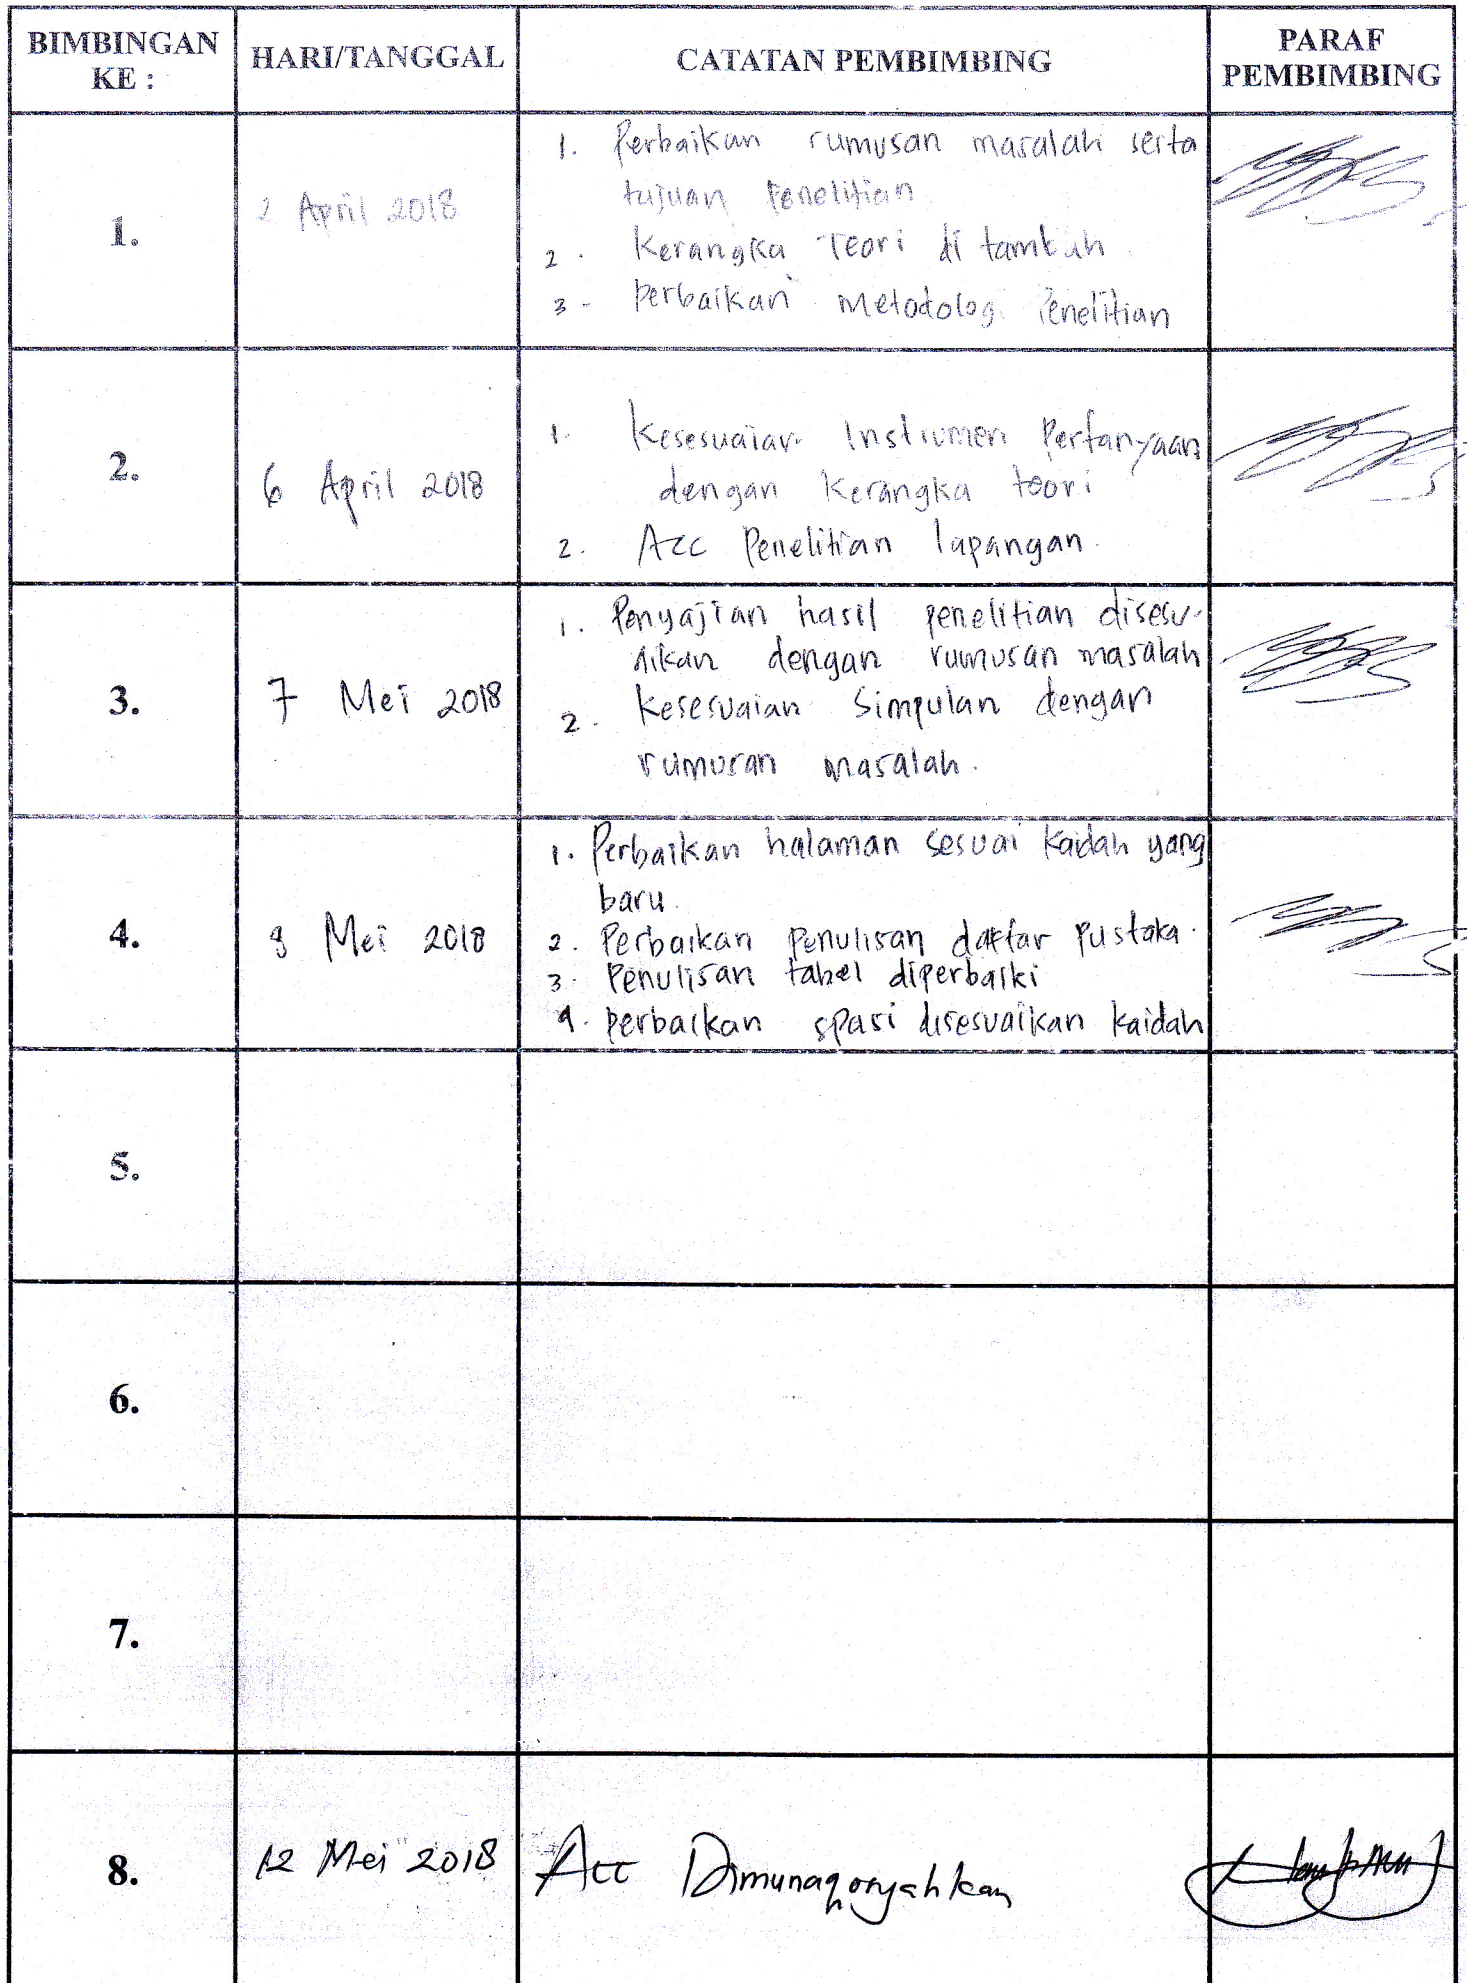 BIMBINGAN KE :
HARI/TANGGAL
CATATAN PEMBIMBING
PARAF PEMBIMBING
1.
2 April 2018
1. Perbaikan rumusan masalah serta
tujuan Penelitian
2. Kerangka Teori di tambah
3 - Perbaikan metodologi Penelitian
2.
6 April 2018
1. Kesesuaian Instrumen Pertanyaan
dengan Kerangka teori
2. Acc Penelitian lapangan.
3.
7 Mei 2018
1. Penyajian hasil penelitian disesu-
aikan dengan rumusan masalah
2. Kesesuaian Simpulan dengan
rumusan masalah.
4.
Mei 2018
1. Perbaikan halaman sesuai kaidah yang
baru.
2. Perbaikan penulisan daftar pustaka.
3. Penulisan tabel diperbaiki
4. perbaikan spasi disesuaikan kaidah
5.
6.
7.
8.
12 Mei 2018
Acc Dimunaqosyahkan